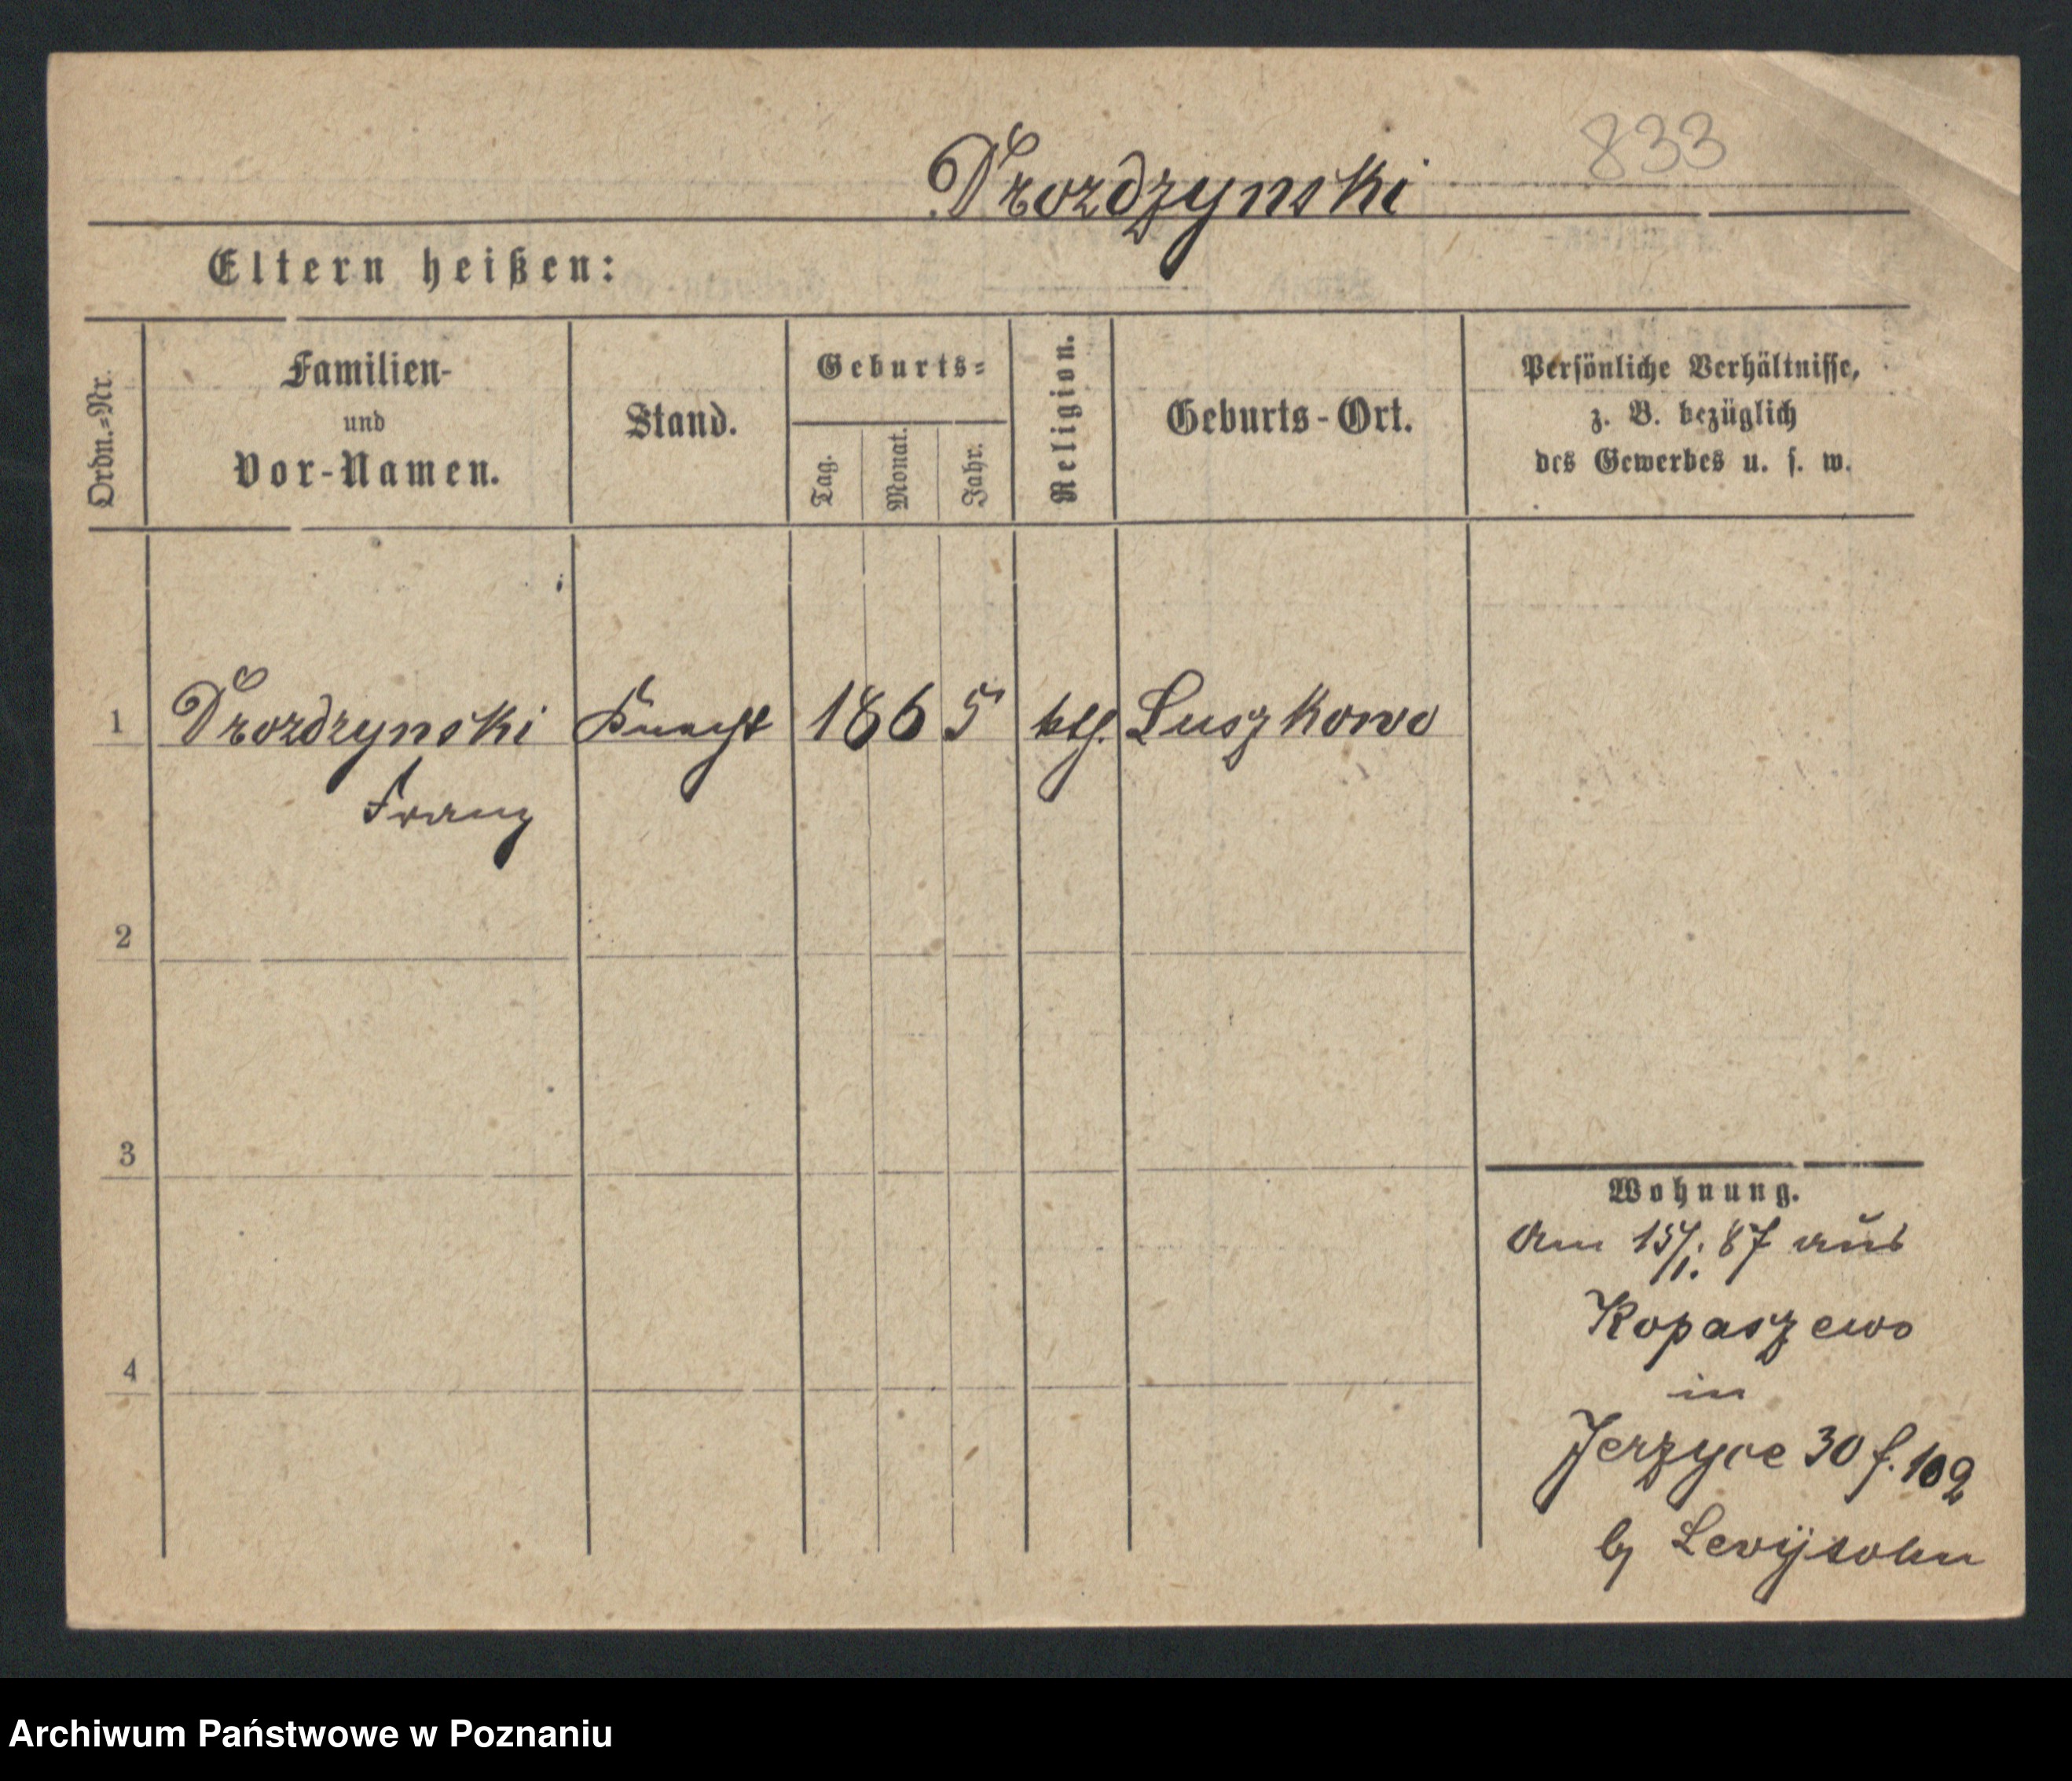 833
Drozdzynski
Eltern heißen:
Ordn.=Nr.
Familien-
und
Vor-Namen.
Stand.
Geburts=
Tag.
Monat.
Jahr.
Religion.
Geburts-Ort.
Persönliche Verhältnisse,
z. B. bezüglich
des Gewerbes u. s. w.
1 Drozdzynski Knecht 1865 kth. Luszkowo
Franz
2
3
4
Wohnung.
Am 15/1. 87 aus
Kopaszewo
in
Jerzyce 30 f. 102
by Levysohn
Archiwum Państwowe w Poznaniu